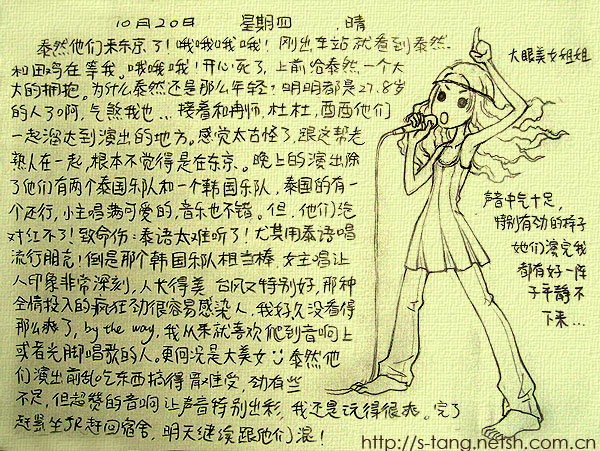 10月20日 星期四 晴
泰然他们来东京了！哦哦哦哦！刚出车站就看到泰然
和田鸡在等我。哦哦哦！开心死了，上前给泰然一个大
大的拥抱。为什么泰然还是那么年轻？明明都是27.8岁
的人了啊，气煞我也...接着和冉师，杜杜，西西他们
一起溜达到演出的地方。感觉太古怪了，跟这帮老
熟人在一起，根本不觉得是在东京。晚上的演出除
了他们有两个泰国乐队和一个韩国乐队，泰国的有一
个还行，小主唱满可爱的，音乐也不错。但，他们绝
对红不了！致命伤：泰语太难听了！尤其用泰语唱
流行朋克！倒是那个韩国乐队相当棒，女主唱让
人印象非常深刻，人长得美 台风又特别好，那种
全情投入的疯狂劲很容易感染人，我好久没看得
那么爽了，by the way，我从来就喜欢爬到音响上
或者光脚唱歌的人。更何况是大美女 泰然他
们演出前乱吃东西搞得 难受，劲有些
不足，但超赞的音响让声音特别出彩，我还是玩得很 。完了
赶紧坐JR赶回宿舍，明天继续跟他们混！
大眼美女姐姐
声音中气十足，
特别有劲的样子
她们演完我
都有好一阵
子平静不
下来...
http://s-tang.netsh.com.cn